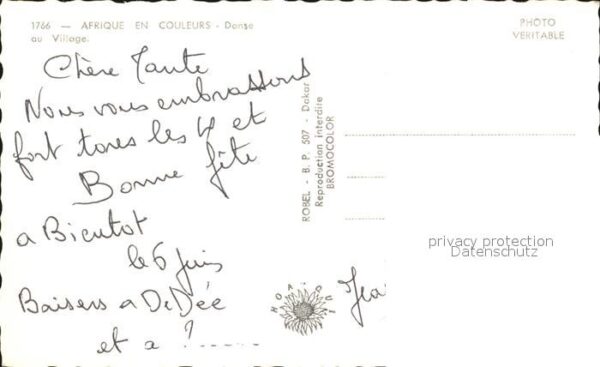 1766 — AFRIQUE EN COULEURS - Danse
au Village.
PHOTO
VERITABLE
Chère Tante
Nous vous embrassons
fort tous les 4 et
Bonne fête
a Bientot
le 6 juin
Baisers a DeDée
et a ? ......
ROBEL - B. P. 507 - Dakar
Reproduction interdire
BROMOCOLOR
HOA-QUI
privacy protection
Datenschutz